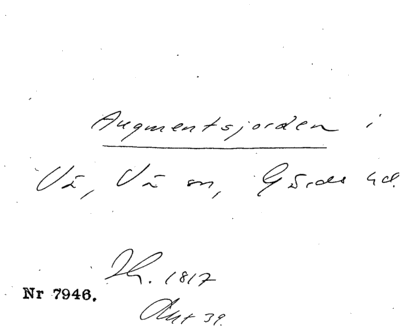 Augmentsjorden i
Vä, Vä sn, Gärds hd.
Jh. 1817
Nr 7946.
Akt 39.